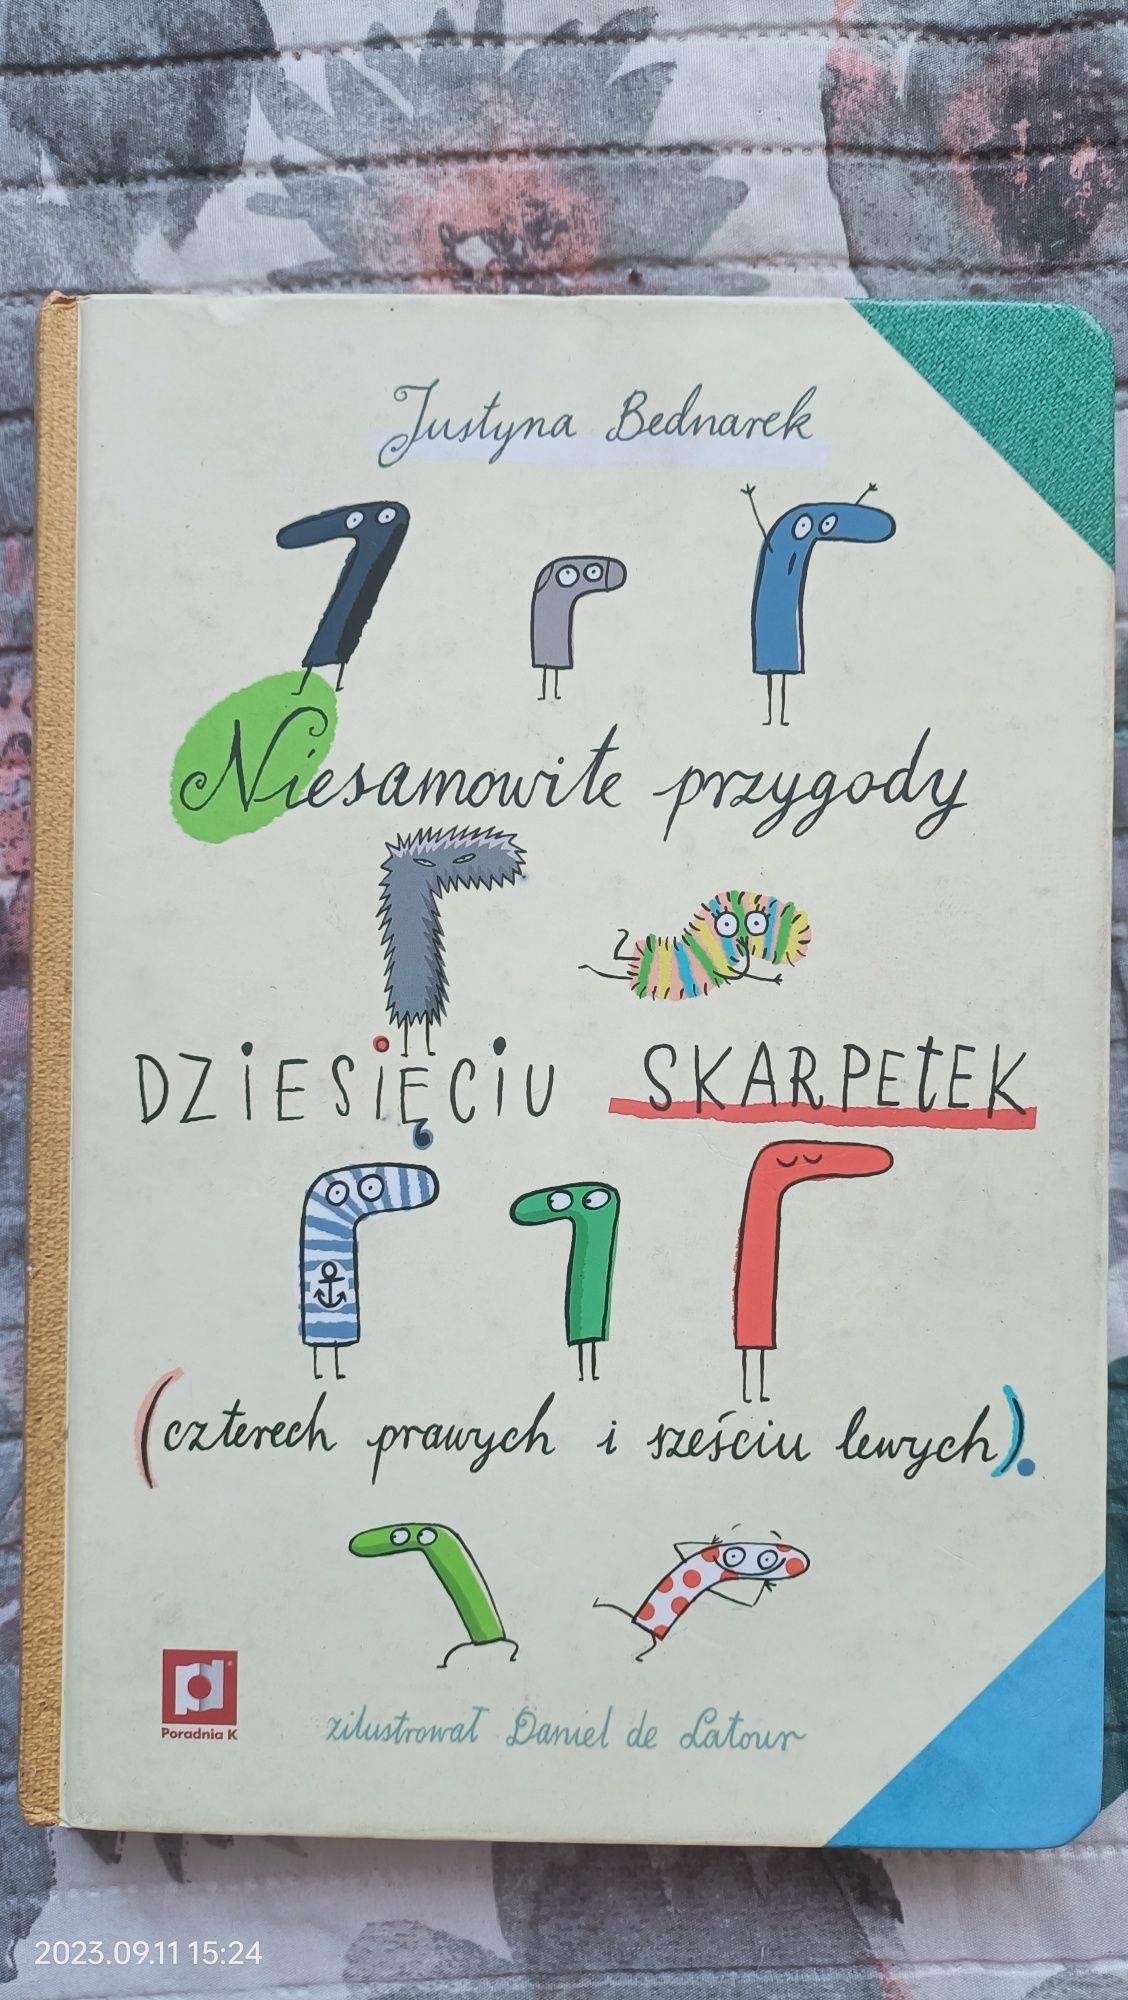 Justyna Bednarek
Niesamowite przygody
DZIESIĘCIU SKARPETEK
(czterech prawych i sześciu lewych).
Poradnia K
zilustrował Daniel de Latour
2023.09.11 15:24